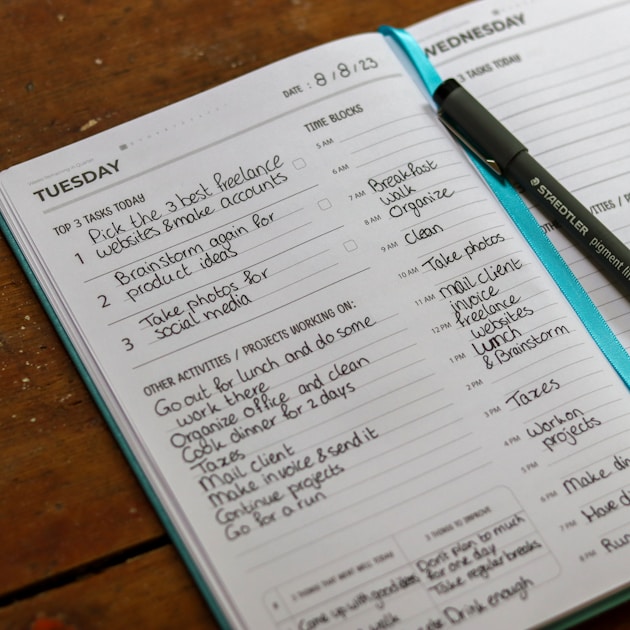 TUESDAY
DATE : 8/8/23
TOP 3 TASKS TODAY
1 Pick the 3 best freelance
websites & make accounts
2 Brainstorm again for
product ideas
3 Take photos for
social media
OTHER ACTIVITIES / PROJECTS WORKING ON:
Go out for lunch and do some
work there
Organize office and clean
Cook dinner for 2 days
Taxes
Mail client
Make invoice & send it
Continue projects
Go for a run
TIME BLOCKS
5 AM
6 AM
7 AM Breakfast
walk
8 AM Organize
9 AM Clean
10 AM Take photos
11 AM mail client
invoice
12 PM freelance
websites
1 PM lunch
& Brainstorm
2 PM
3 PM Taxes
4 PM Work on
projects
5 PM
6 PM Make
7 PM Have
8 PM
3 THINGS THAT WENT WELL TODAY
Came up with good
walk
3 THINGS TO IMPROVE
Don't plan to much
for one day
Take regular breaks
Drink enough
WEDNESDAY
3 TASKS TODAY
STAEDTLER
pigment